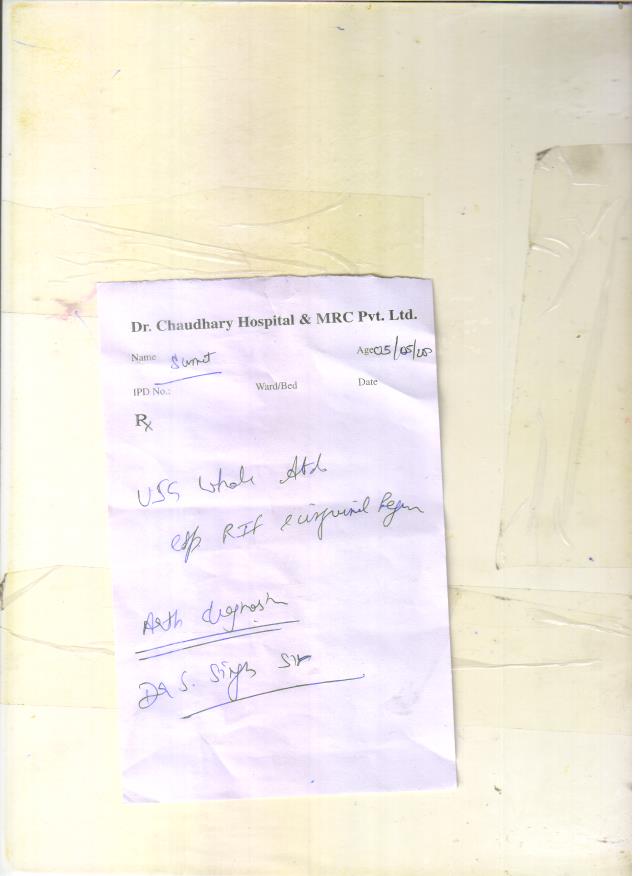 Dr. Chaudhary Hospital & MRC Pvt. Ltd.
Name Sumit Age 05/05/20
IPD No.: Ward/Bed Date
Rx
USG Whole Abd
esp RIF & inguinal Region
diagnosis
Dr S. Singh Sir